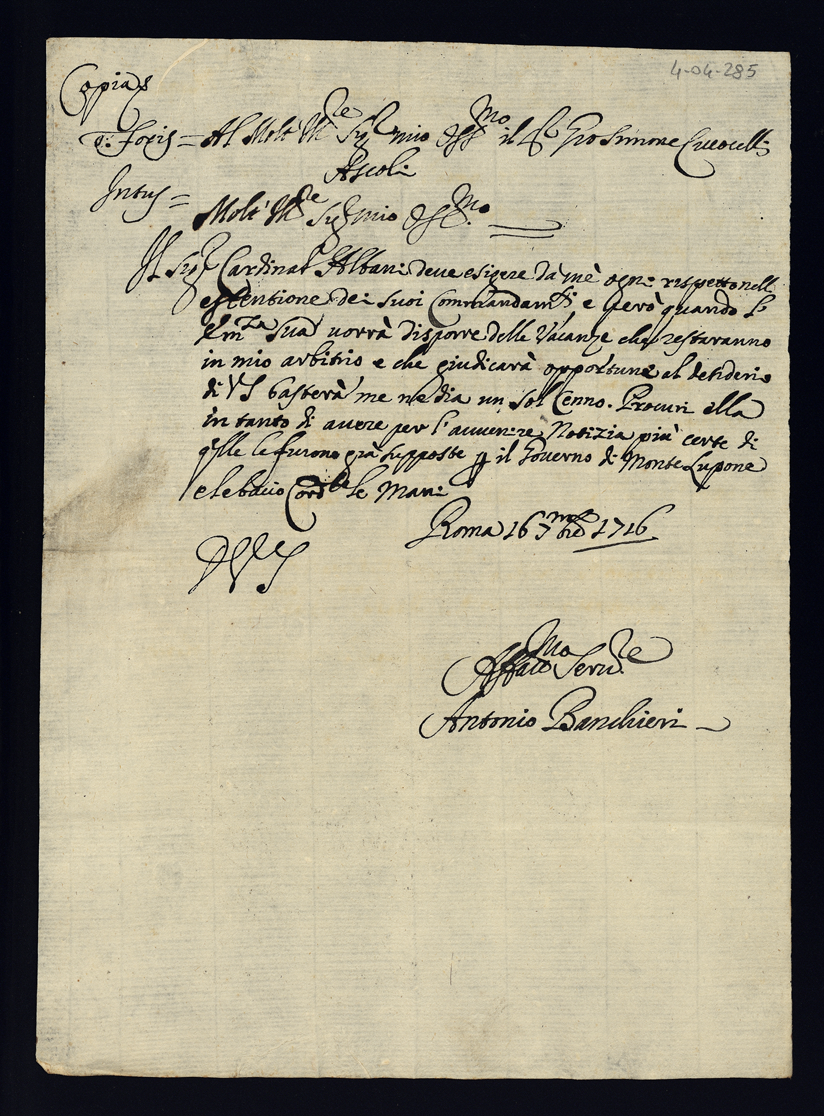 4-04-285
Copia
à foris = Al Molt Ill.re Sig.r mio oss.mo il Sig.r Gio Simone
Ascoli
Intus =
Molt' Ill.re Sig.r mio oss.mo
Il Sig.r Cardinal Albani deve esigere da mè ogni rispetto nell
essecutione dei suoi Commandam.ti, e però quando
Em.za Sua vorrà disporre delle Vacanze che restaranno
in mio arbitrio e che giudicarà opportune al desiderio
di VS basterà me ne dia un sol Cenno. Procuri ella
in tanto di avere per l'avvenire Notizia più certe di
q.lle le furono già supposte p il Governo di Monte Lupone
e le bacio Cord.te le Mani
Roma 16 7mbre 1716
D V S
Affmo Serv.re
Antonio Banchieri